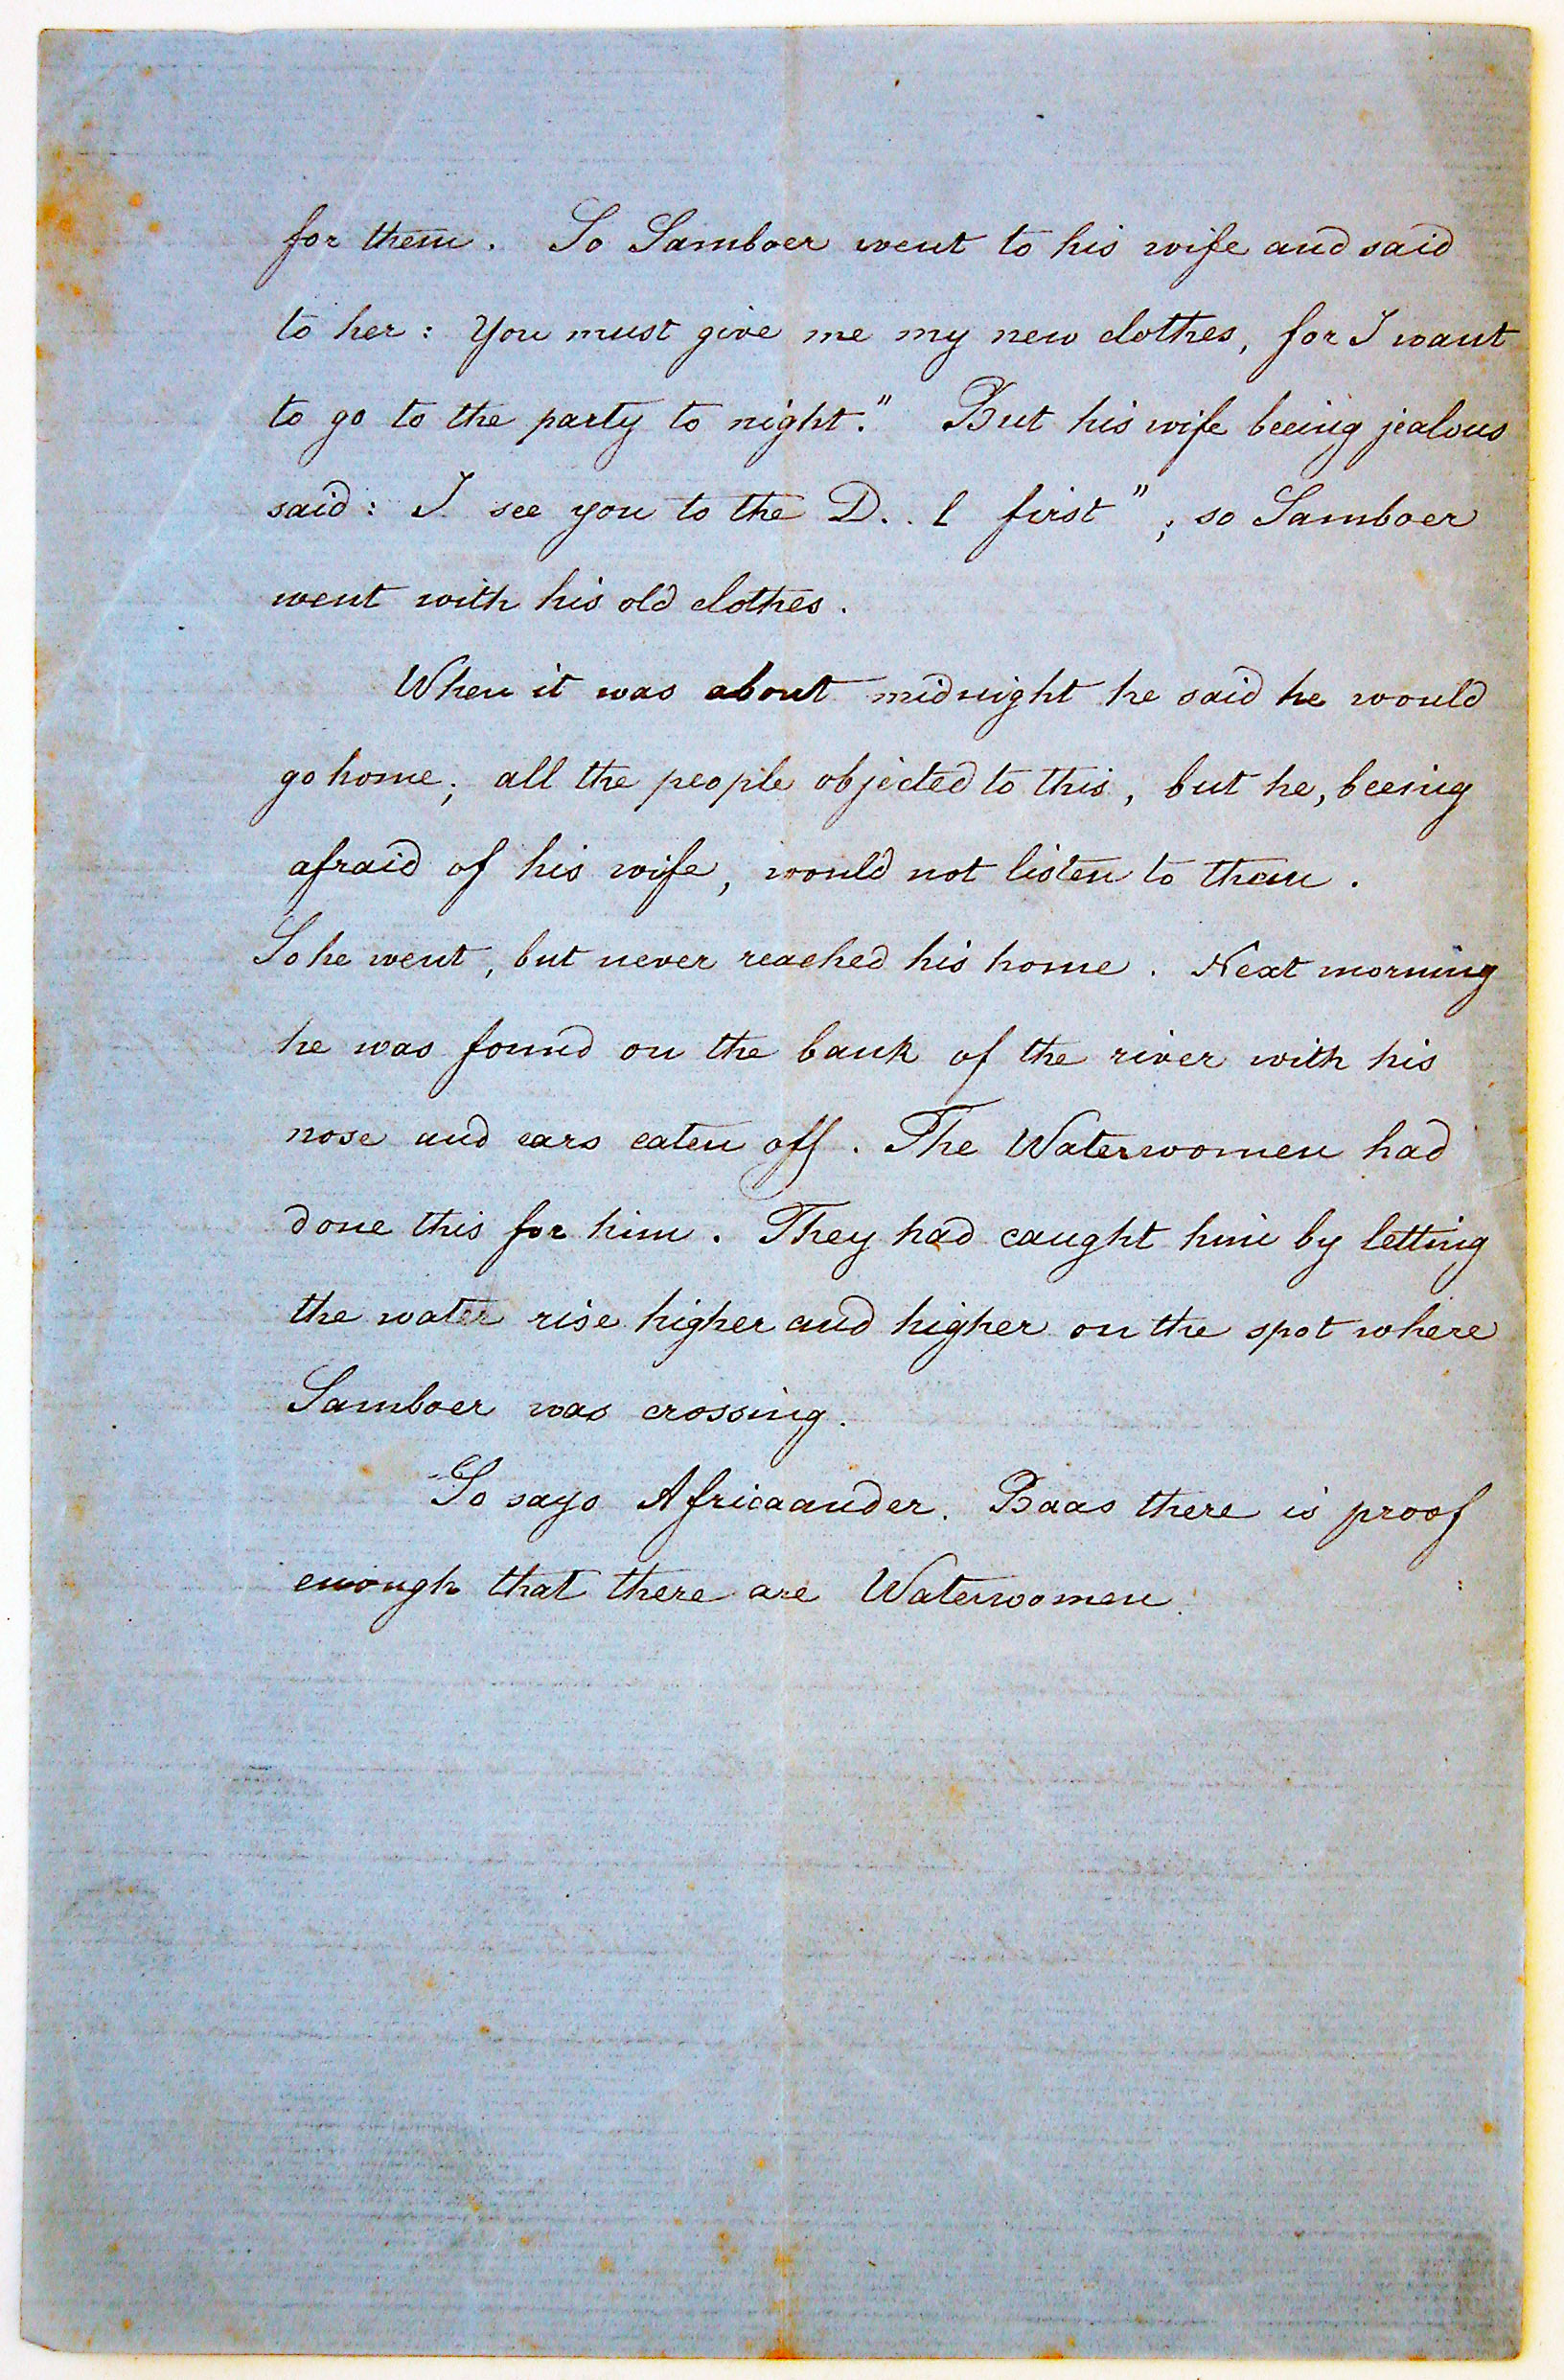 for them. So Samboer went to his wife and said
to her: You must give me my new clothes, for I want
to go to the party to night." But his wife beeing jealous
said: I see you to the D. . l first"; so Samboer
went with his old clothes.
When it was about midnight he said he would
go home; all the people objected to this, but he, beeing
afraid of his wife, would not listen to them.
So he went, but never reached his home. Next morning
he was found on the bank of the river with his
nose and ears eaten off. The Waterwomen had
done this for him. They had caught him by letting
the water rise higher and higher on the spot where
Samboer was crossing.
So says Africaander. Baas there is proof
enough that there are Waterwomen.